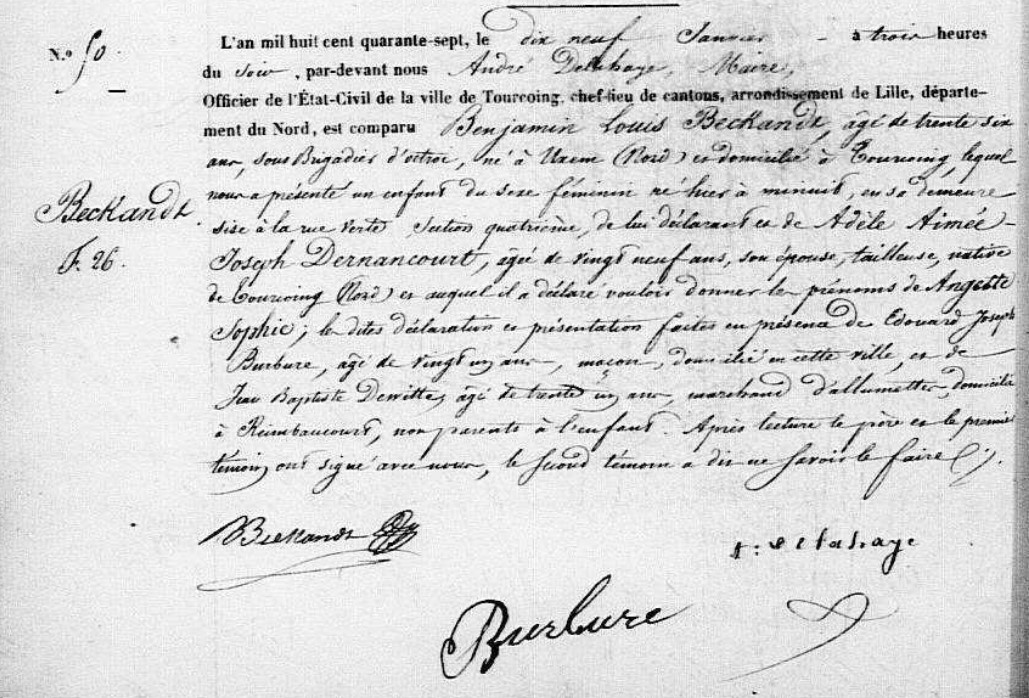 N.o 50
L'an mil huit cent quarante-sept, le dix neuf Janvier à trois heures
du soir, par-devant nous André Delahaye, Maire,
Officier de l'État-Civil de la ville de Tourcoing, chef-lieu de cantons, arrondissement de Lille, départe-
ment du Nord, est comparu Benjamin Louis Beckandt, âgé de trente six
ans, sous Brigadier d'octroi, né à Uxem (Nord) et domicilié à Tourcoing, lequel
nous a présenté un enfant du sexe féminin né hier à minuit, en sa demeure
sise à la rue verte Section quatrième, de lui déclarant et de Adèle Aimée
Beckandt
F. 26.
Joseph Dernancourt, âgée de vingt neuf ans, son épouse, tailleuse, native
de Tourcoing (Nord) et auquel il a déclaré vouloir donner les prénoms de
Sophie; les dites déclaration et présentation faites en présence de Edouard Joseph
Burbure, âgé de vingt un ans, maçon, domicilié en cette ville, et de
Jean Baptiste Dewitte, âgé de trente un ans, marchand d'allumettes, domicilié
à Reimbaucourt, non parents à l'enfant. Après lecture le père et le premier
témoin ont signé avec nous, le second témoin a dit ne savoir le faire (.).
Beckandt
A: Delahaye
Burbure